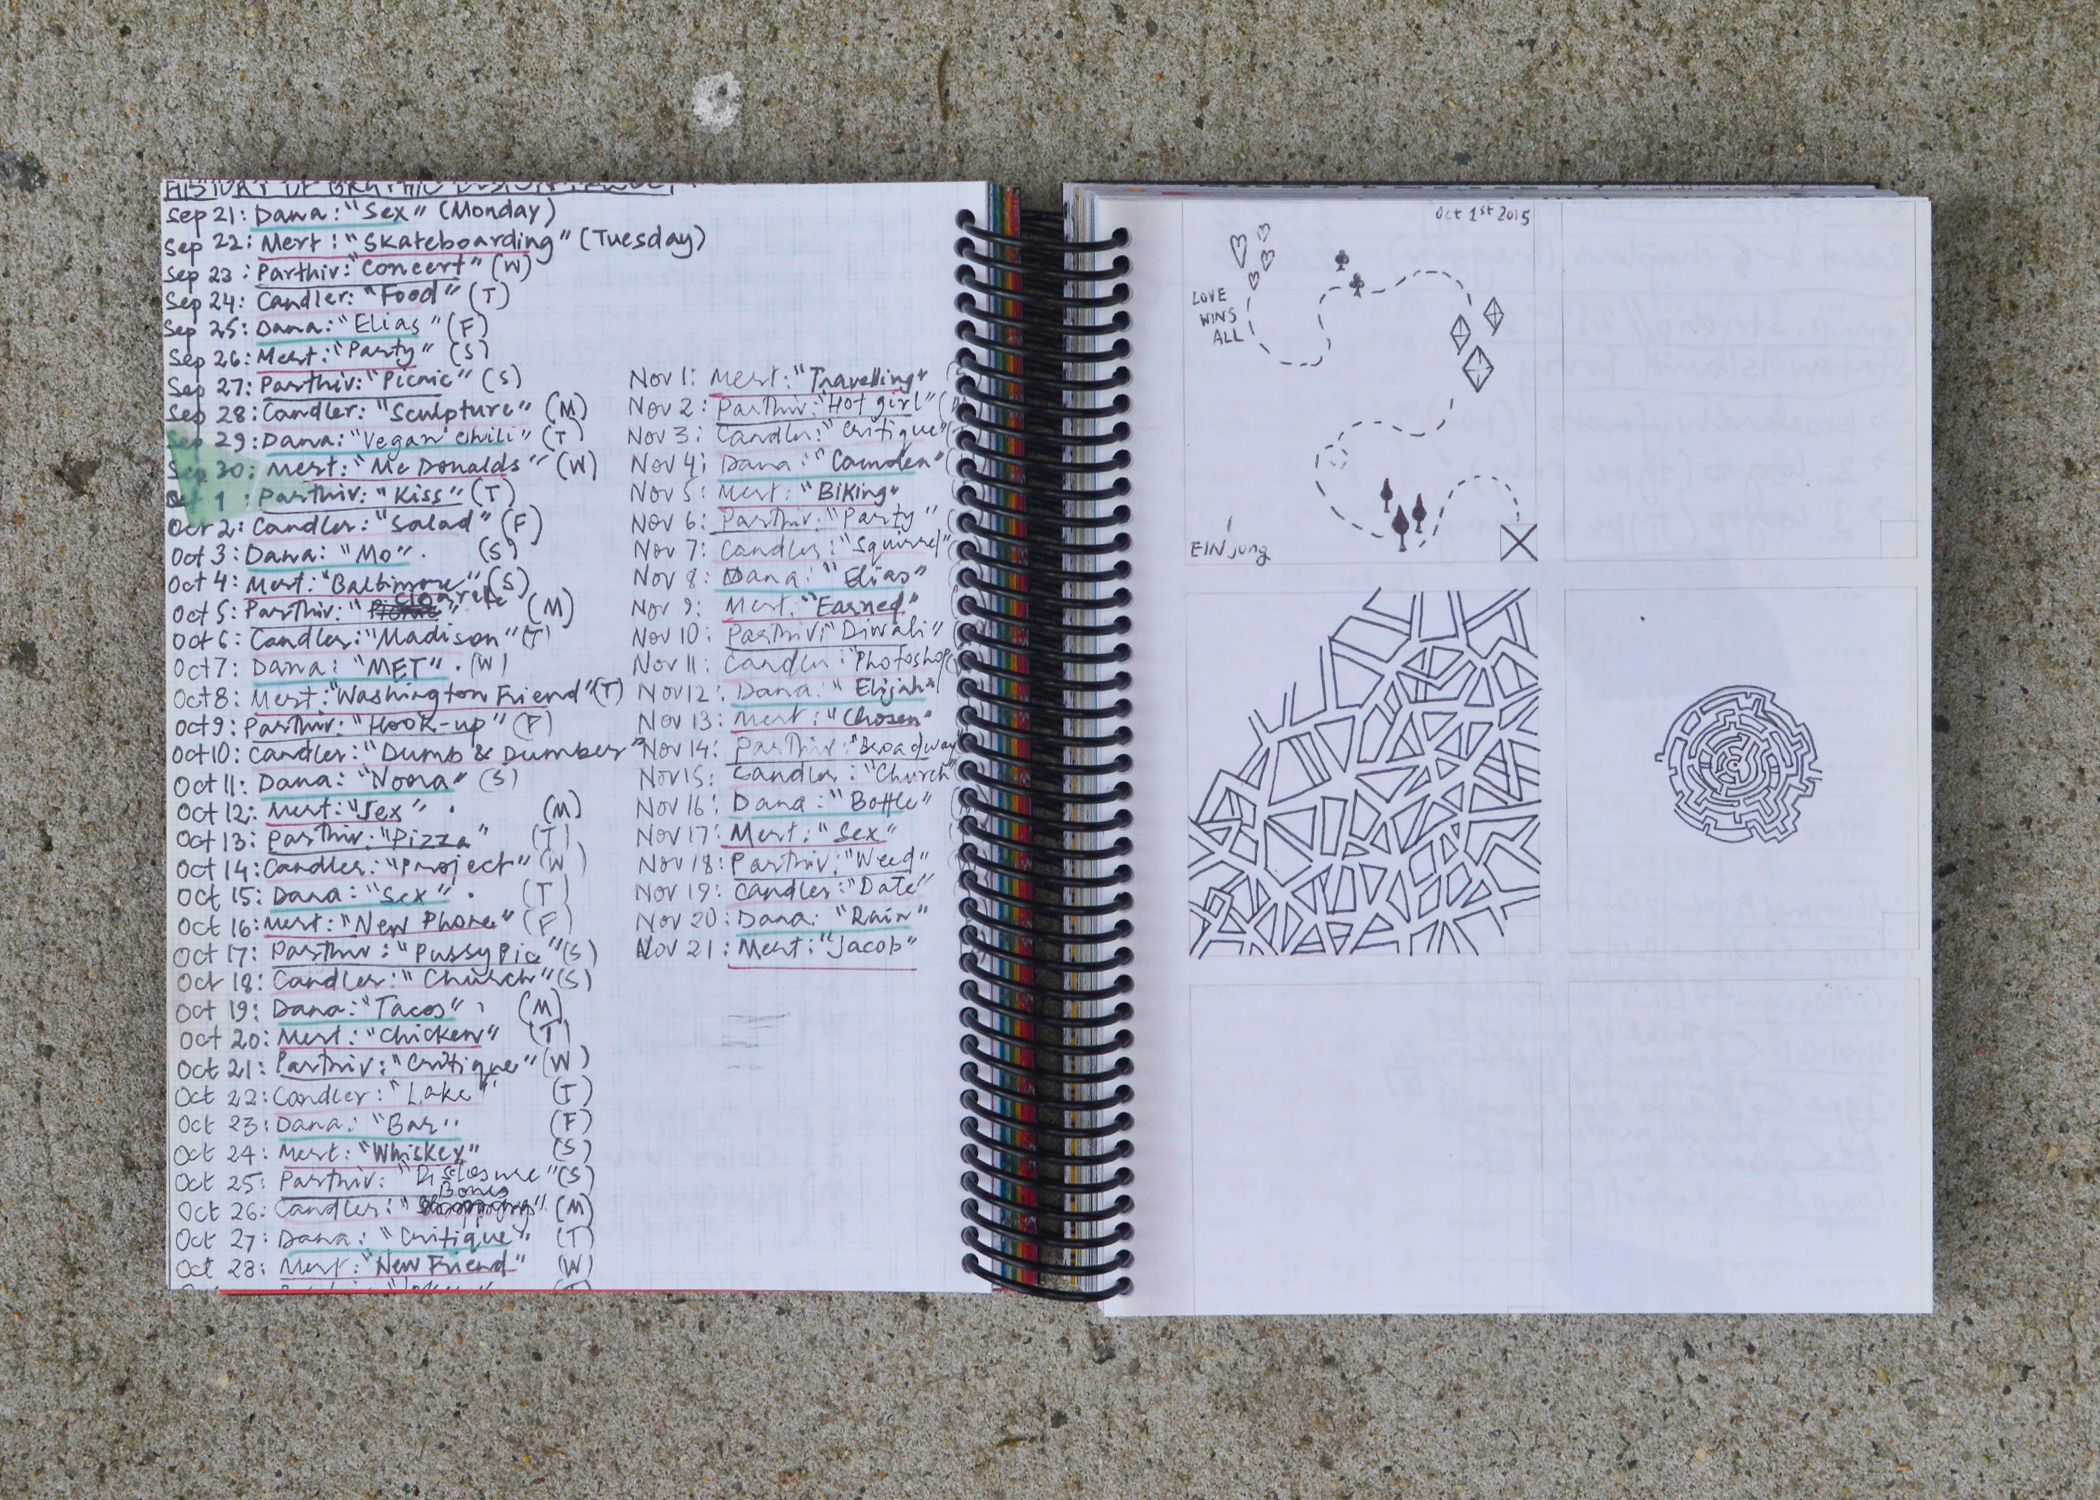 HISTORY OF GRAPHIC DESIGN
Sep 21: Dana: "Sex" (Monday)
Sep 22: Mert: "Skateboarding" (Tuesday)
Sep 23: Parthiv: "Concert" (W)
Sep 24: Candler: "Food" (T)
Sep 25: Dana: "Elias" (F)
Sep 26: Mert: "Party" (S)
Sep 27: Parthiv: "Picnic" (S)
Sep 28: Candler: "Sculpture" (M)
Sep 29: Dana: "Vegan Chili" (T)
Sep 30: Mert: "McDonalds" (W)
Oct 1: Parthiv: "Kiss" (T)
Oct 2: Candler: "Salad" (F)
Oct 3: Dana: "Mo". (S)
Oct 4: Mert: "Baltimore" (S)
Oct 5: Parthiv: "" (M)
Oct 6: Candler: "Madison" (T)
Oct 7: Dana: "MET". (W)
Oct 8: Mert: "Washington Friend" (T)
Oct 9: Parthiv: "Hook-up" (F)
Oct 10: Candler: "Dumb & Dumber"
Oct 11: Dana: "Noona" (S)
Oct 12: Mert: "Sex". (M)
Oct 13: Parthiv: "Pizza" (T)
Oct 14: Candler: "Project" (W)
Oct 15: Dana: "Sex". (T)
Oct 16: Mert: "New Phone" (F)
Oct 17: Parthiv: "Pussy Pic" (S)
Oct 18: Candler: "Church" (S)
Oct 19: Dana: "Tacos" (M)
Oct 20: Mert: "Chicken" (T)
Oct 21: Parthiv: "Critique" (W)
Oct 22: Candler: "Lake" (T)
Oct 23: Dana: "Bar" (F)
Oct 24: Mert: "Whiskey" (S)
Oct 25: Parthiv: "Disclosure" (S)
Oct 26: Candler: "Bones" (M)
Oct 27: Dana: "Critique" (T)
Oct 28: Mert: "New Friend" (W)
Nov 1: Mert: "Travelling"
Nov 2: Parthiv: "Hot girl"
Nov 3: Candler: "Critique"
Nov 4: Dana: "Camden"
Nov 5: Mert: "Biking"
Nov 6: Parthiv: "Party"
Nov 7: Candler: "Squirrel"
Nov 8: Dana: "Elias"
Nov 9: Mert: "Earned"
Nov 10: Parthiv: "Diwali"
Nov 11: Candler: "Photoshop
Nov 12: Dana: "Elijah"
Nov 13: Mert: "Chosen"
Nov 14: Parthiv: "Broadway
Nov 15: Candler: "Church"
Nov 16: Dana: "Bottle"
Nov 17: Mert: "Sex"
Nov 18: Parthiv: "Weed"
Nov 19: Candler: "Date"
Nov 20: Dana: "Rain"
Nov 21: Mert: "Jacob"
Oct 1st 2015
LOVE
WINS
ALL
EINjung